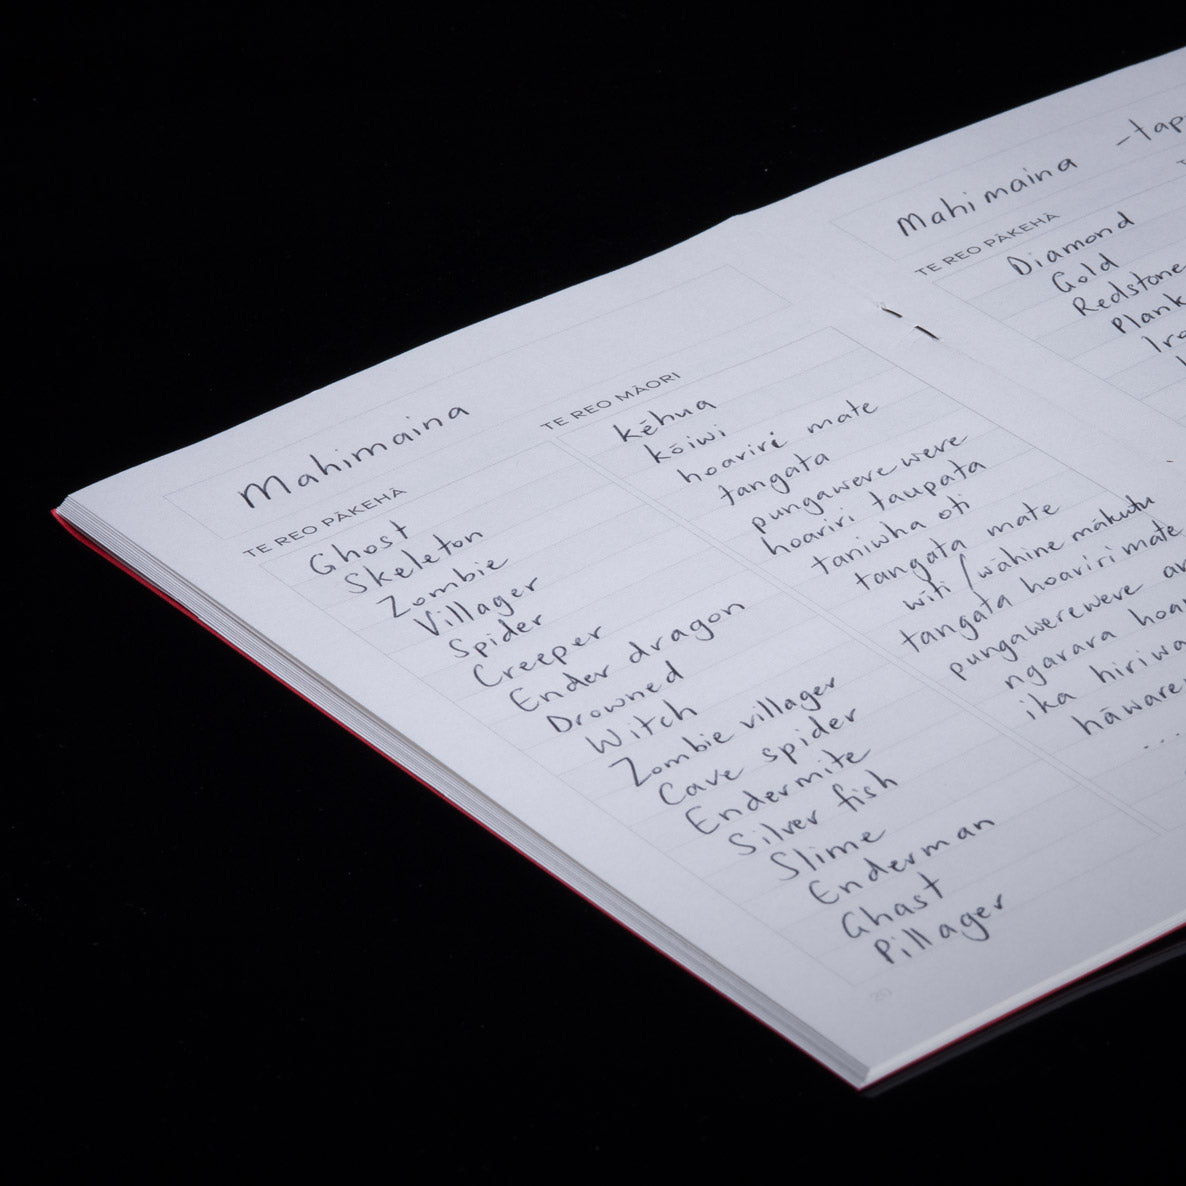 Mahimaina
TE REO PĀKEHĀ
Ghost
Skeleton
Zombie
Villager
Spider
Creeper
Ender dragon
Drowned
Witch
Zombie villager
Cave spider
Endermite
Silver fish
Slime
Enderman
Ghast
Pillager
TE REO MĀORI
kēhua
kōiwi
hoariri mate
tangata
pungawerewere
hoariri taupata
taniwha oti
tangata mate
wīti / wahine mākutu
tangata hoariri mate
pungawerewere
ngarara
ika
...
20
Mahi maina
TE REO PĀKEHĀ
Diamond
Gold
Redstone